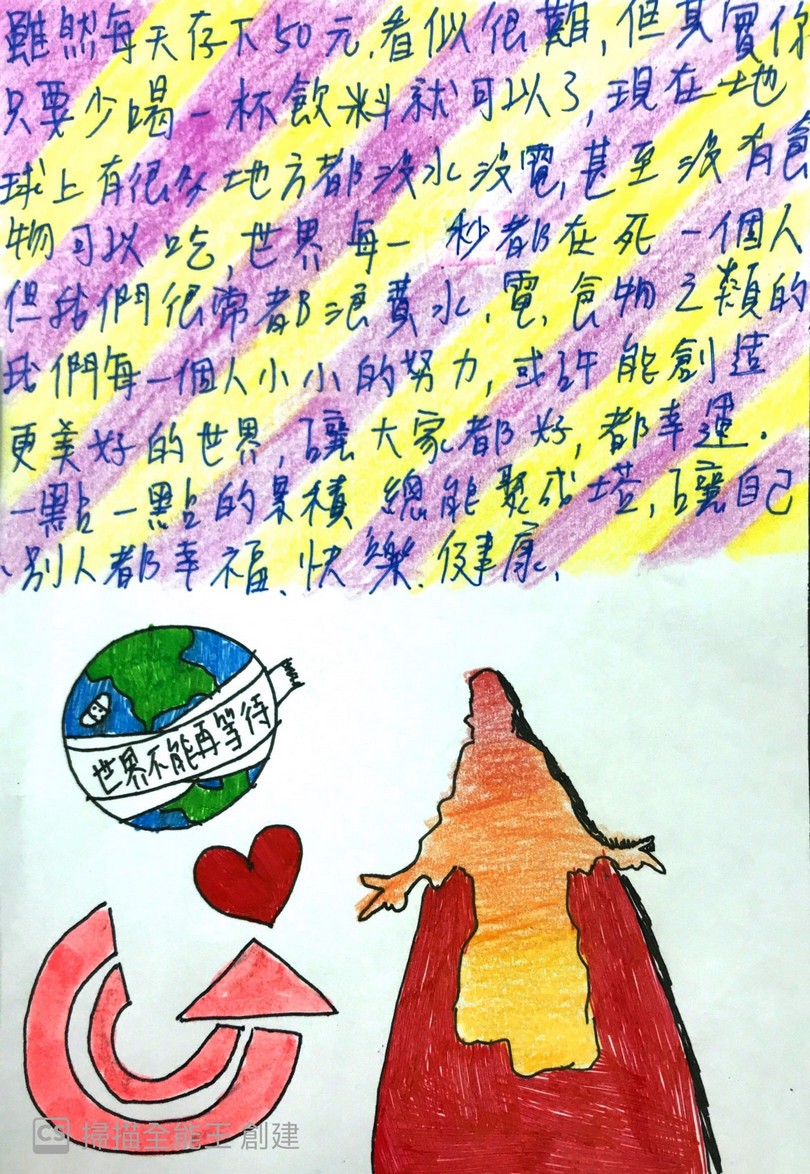 雖然每天存下50元,看似很難,但其實你
只要少喝一杯飲料就可以了,現在地
球上有很多地方都沒水沒電,甚至沒有食
物可以吃,世界每一秒都在死一個人
但我們很常都浪費水、電、食物之類的
我們每一個人小小的努力,或許能創造
更美好的世界,讓大家都好,都幸運。
一點一點的累積總能聚成塔,讓自己
、別人都幸福、快樂、健康.
世界不能再等待
CS 掃描全能王 創建